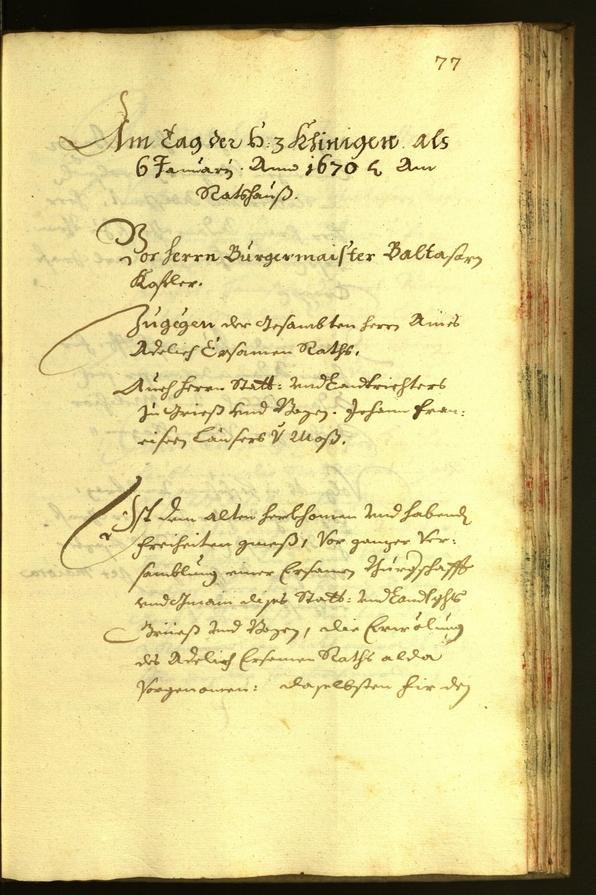 77
Am Tag der H: 3 Khinigen als
6 Januarÿ. Anno 1670 Am
Rathhauß.
Vor Herrn Burgermaister Baltasarn
Kofler.
Zugegen der Gesambten Herrn Aines
Adelich Ersamen Raths.
Auch Herrn Statt: und Landtrichters
zu Grieß und Bozen. Johann Fran:
ciscen
Ist dem alten herkhomen und habenden
freiheiten gmeß, vor ganzer Ver:
samblung einer Ersamen Burgschafft
und Gmain dises Statt: und Landtghts
Grieß und Bozen, die Erwölung
des Adelich Ersamen Raths alda
vorgenomen: daselbsten für den